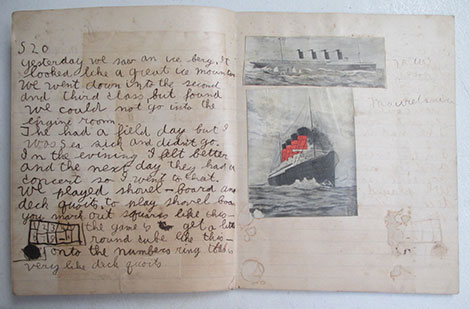 520
Yesterday we saw an ice berg, It
looked like a great ice mountain
We went down into the second
and third class, but found
we could not go into the
engine room
The had a field day but I
was sea sick and didn't go.
In the evening I felt better
and the next day they had a
concert so I went to that.
We played shovel-board and
deck quoits, to play shovel board
you mark out squares like this-
the game is to get a
round tube like this-
onto the numbers ring
very like deck quoits